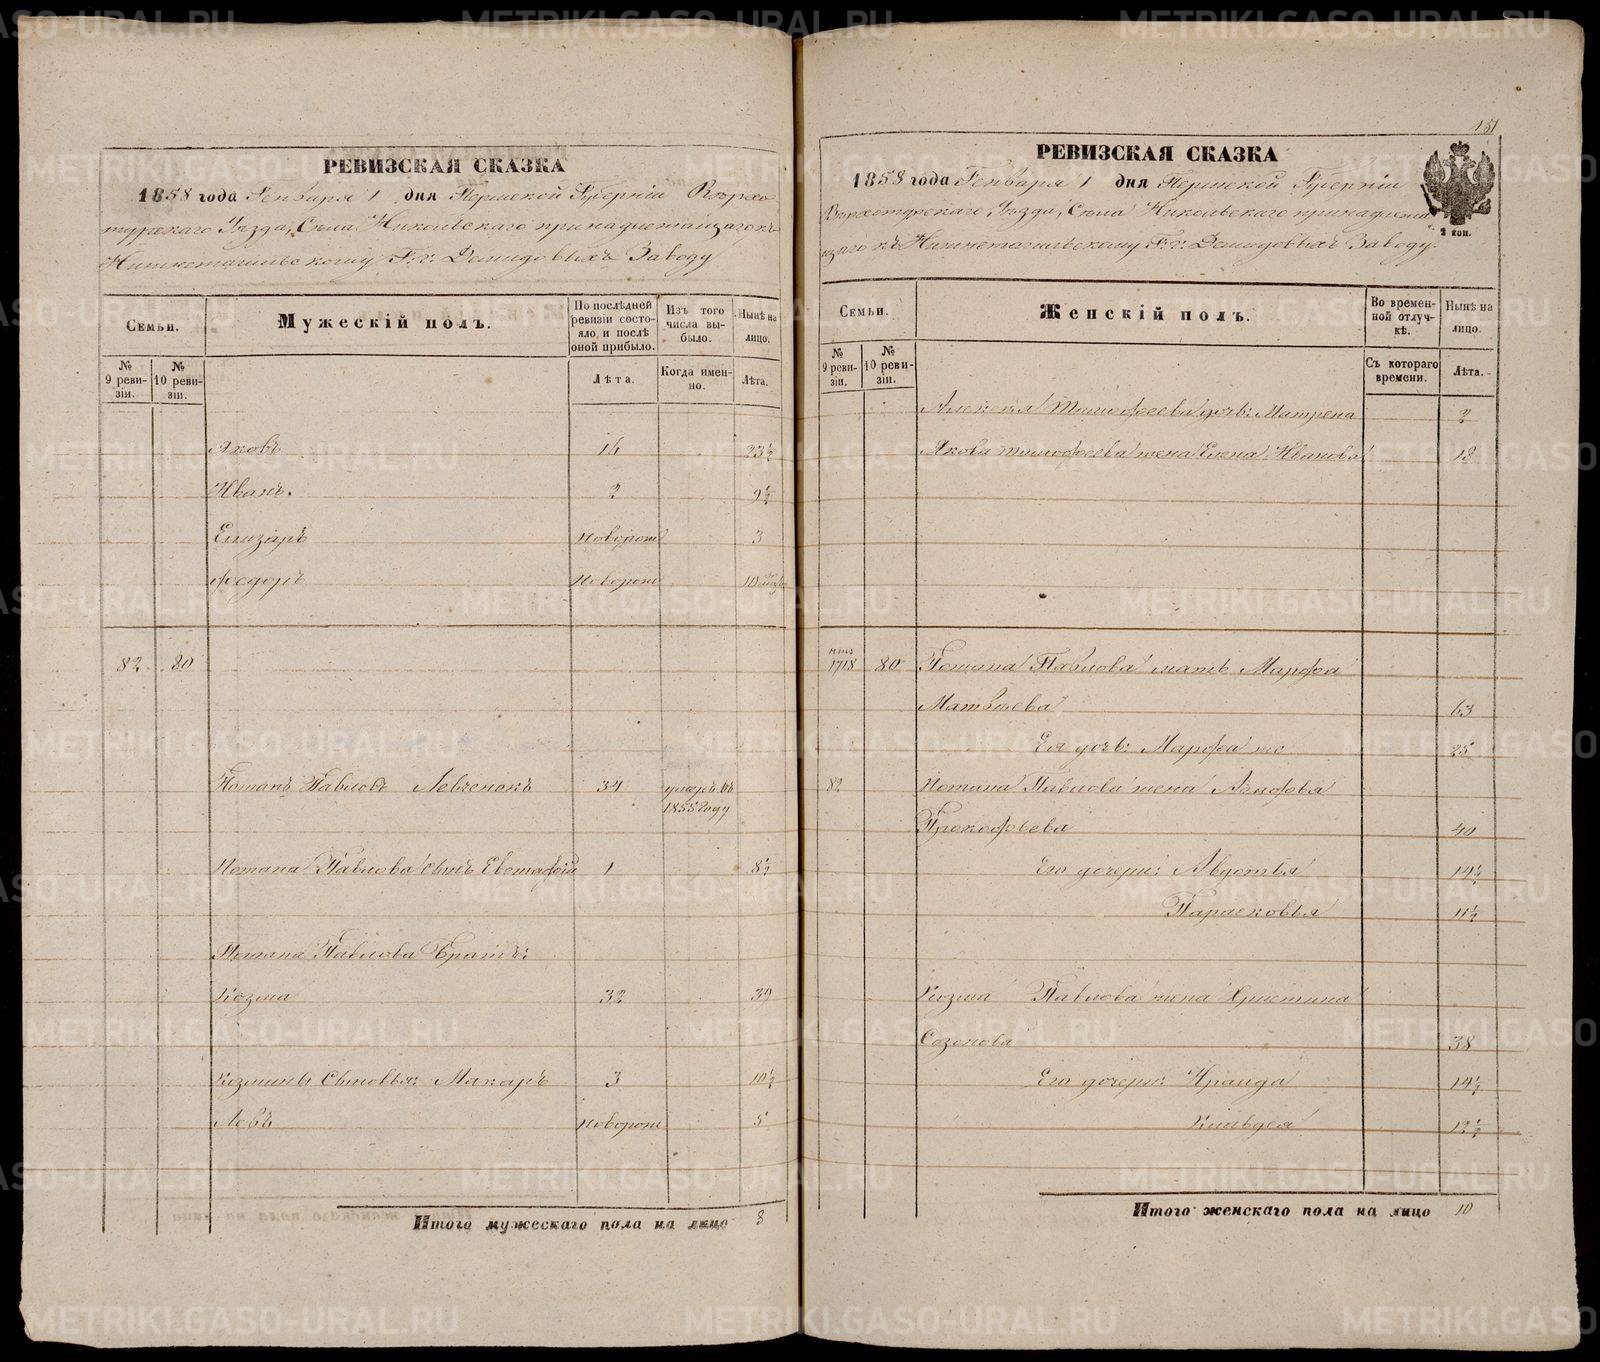 РЕВИЗСКАЯ СКАЗКА
1858 года Генваря 1 дня Пермской Губерніи Верхо
турскаго Уезда, Села Никольскаго принадлежащаго къ
Нижнетагильскому Г.г. Демидовыхъ Заводу
Семьи.
Мужескій полъ.
По послѣдней ревизіи состояло, и послѣ оной прибыло.
Изъ того числа выбыло.
Нынѣ на лицо.
№ 9 ревизіи.
№ 10 ревизіи.
Лѣта.
Когда именно.
Лѣта.
Яковъ 16 23½
Иванъ. 2 9½
Елизаръ новорож 3
Федоръ новорож 10
82 80
Потапъ Павловъ Левченокъ 34 умеръ въ
1855 году
Потапа Павлова сынъ Евстафій 1 8½
Потапа Павлова братъ:
Козма 32 39
Козмины Сыновья: Макаръ 3 10½
Левъ новорож 5
Итого мужескаго пола на лицо 8
151
РЕВИЗСКАЯ СКАЗКА
1858 года Генваря 1 дня Пермской Губерніи
Верхотурскаго Уезда, Села Никольскаго принадлежа
щаго къ Нижнетагильскому Г.г. Демидовыхъ Заводу.
2 коп.
Семьи.
Женскій полъ.
Во временной отлучкѣ.
Нынѣ на лицо.
№ 9 ревизіи.
№ 10 ревизіи.
Съ котораго времени.
Лѣта.
Алексея Тимофеева дочь: Матрена 2
Якова Тимофеева жена Елена Иванова 18
1718 80 Потапа Павлова мать Марфа
Матвеева 63
Ея дочь: Марфа же 25
82 Потапа Павлова жена Агафья
Прокофьева 40
Его дочери: Авдотья 14½
Парасковья 11½
Козма Павлова жена Христина
Созонова 38
Его дочери: Ираида 14½
Клавдея 12½
Итого женскаго пола на лицо 10
METRIKI.GASO-URAL.RU